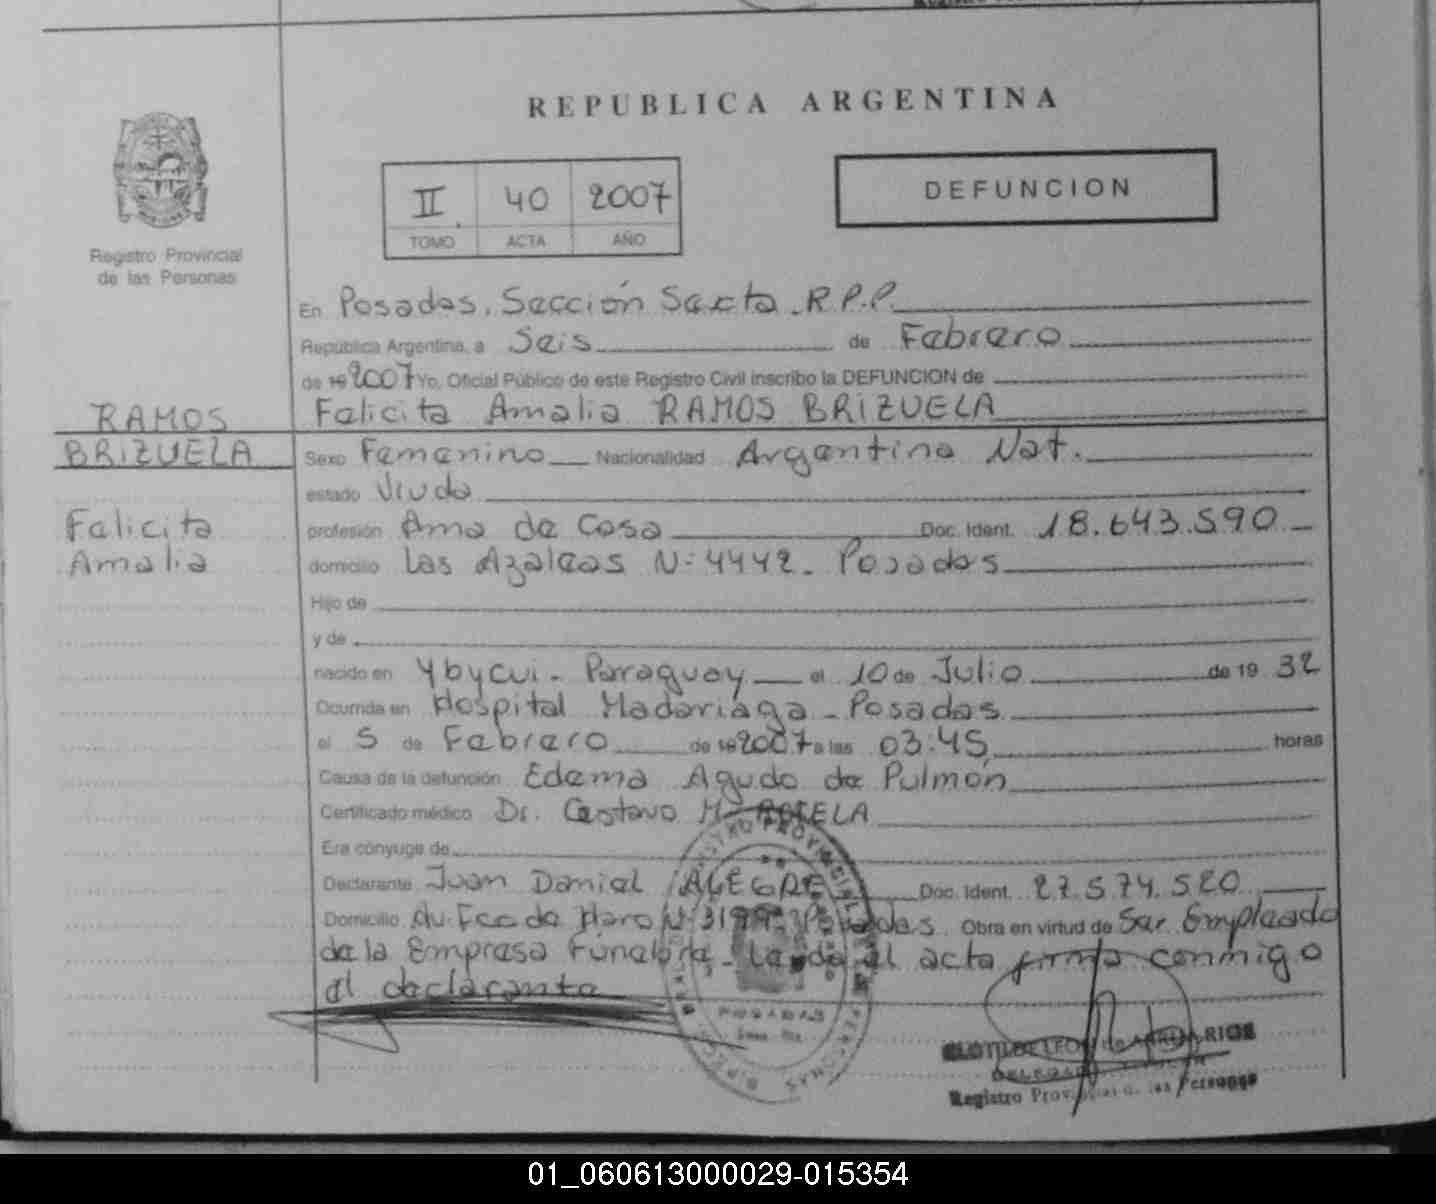 REPUBLICA ARGENTINA
II 40 2007
TOMO ACTA AÑO
DEFUNCION
Registro Provincial
de las Personas
En Posadas, Sección Sexta R.P.P.
República Argentina, a Seis de Febrero
de 19 2007 Yo, Oficial Público de este Registro Civil inscribo la DEFUNCION de
Felicita Amalia RAMOS BRIZUELA
RAMOS
BRIZUELA
Felicita
Amalia
Sexo Femenino Nacionalidad Argentina Nat.
estado Viuda
profesión Ama de Casa Doc. Ident. 18.643.590
domicilio Las Azaleas N: 4442 - Posadas
Hijo de
y de
nacido en Ybycui - Paraguay el 10 de Julio de 19 32
Ocurrida en Hospital Madariaga - Posadas
el 5 de Febrero de 19 2007 a las 03:45 horas
Causa de la defunción Edema Agudo de Pulmón
Certificado médico Dr. Gustavo M.
Era cónyuge de
Declarante Juan Daniel ALEGRE Doc. Ident. 27.574.520
Domicilio Av. Fco de Haro N: Posadas Obra en virtud de Ser Empleado
de la Empresa Funebre - Leída el acta firma conmigo
el declarante
REGISTRO PROVINCIAL DE LAS PERSONAS
POSADAS
Registro Provincial de las Personas
01_060613000029-015354